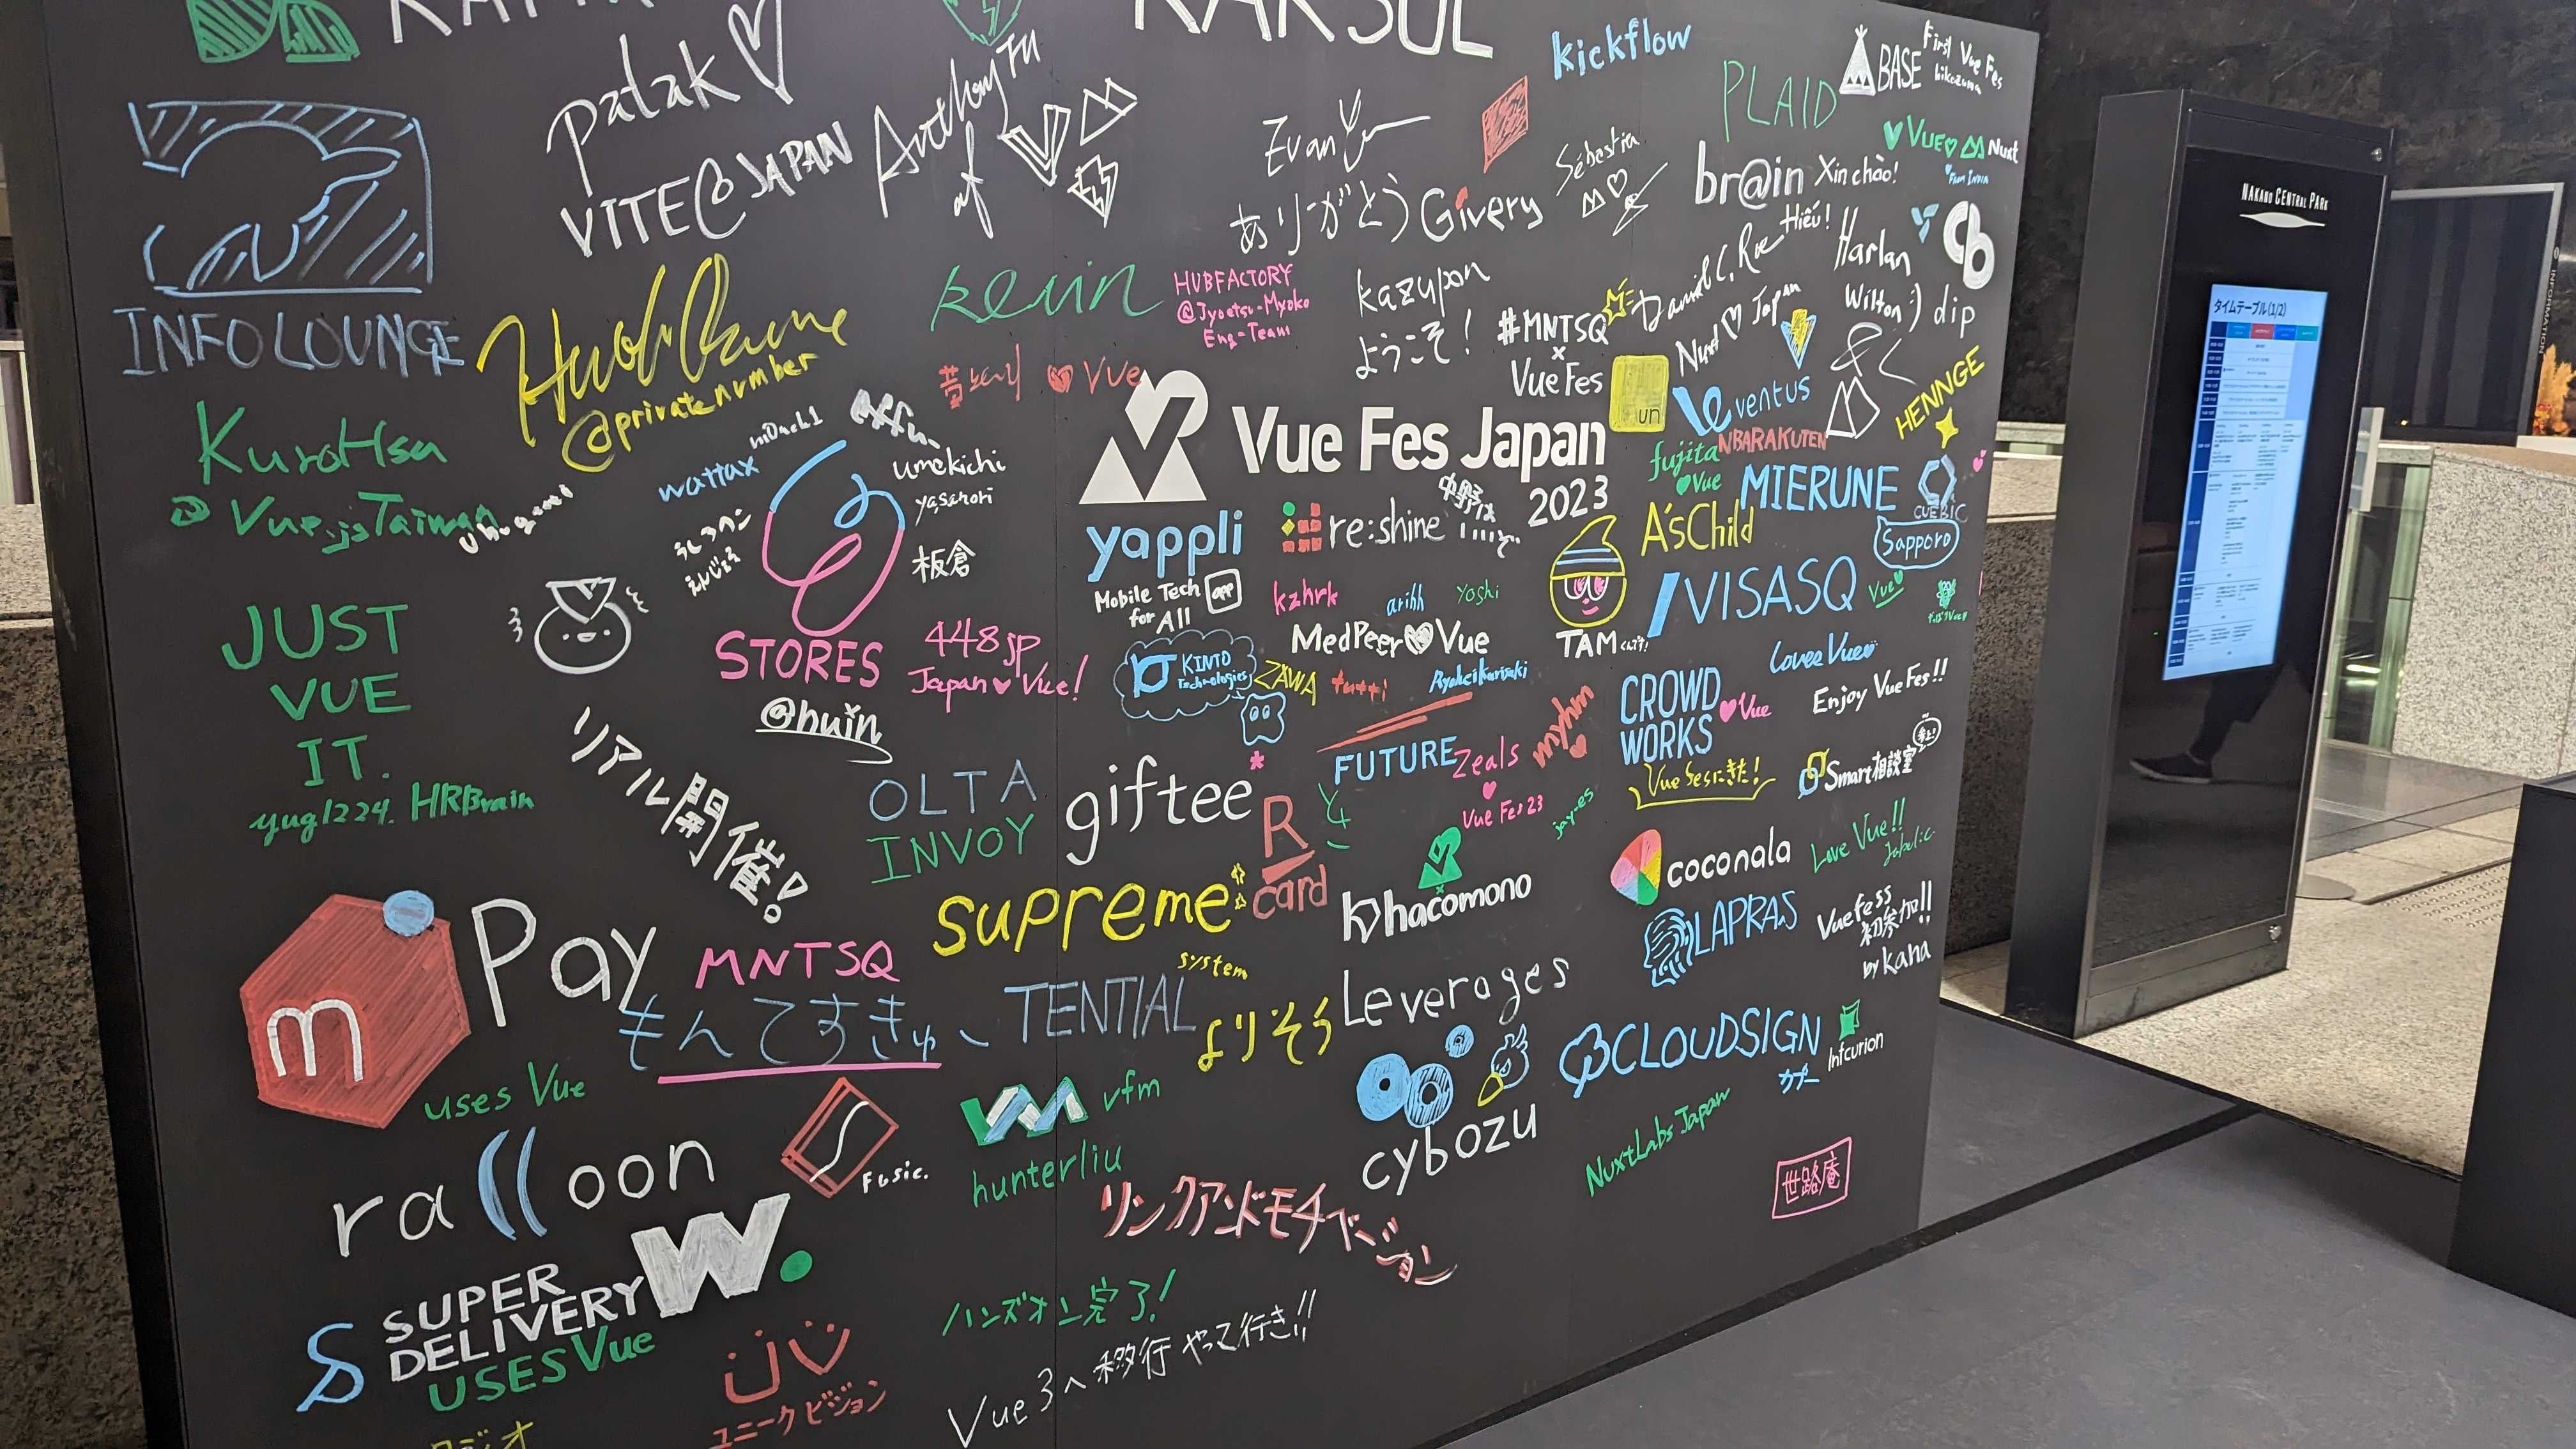 RAKSUL
kickflow
BASE
First Vue Fes
hikozuma
patak♡
Anthony Fu
af
PLAID
VITE@JAPAN
Evan You
ありがとう
Givery
Sébastien
br@in
Xin chào!
Hiếu!
Vue♡
Nuxt
From INDIA
INFO LOUNGE
@privatenumber
kevin
HUBFACTORY
@Jyoetsu-Myoko
Eng-Team
kazupon
ようこそ!
#MNTSQ
×
Vue Fes
Daniel C. Roe
Nuxt♡Japan
Harlan
Wilton :)
dip
Vue
KuroHsu
@Vue.jsTaiwan
wattax
umekichi
yasahori
板倉
Vue Fes Japan
2023
中野はいいぞ
un
ventus
fujita
♡Vue
HENNGE
MIERUNE
CUEBIC
Sapporo
yappli
Mobile Tech
for All
app
re:shine
A'sChild
TAM
VISASQ
Vue
kzhrk
arihh
yoshi
MedPeer♡Vue
JUST
VUE
IT.
yug1224. HRBrain
STORES
@huin
448jp
Japan♥Vue!
KINTO
Technologies
ZAWA
RyoheiKurisaki
CROWD
WORKS
♥Vue
Lovee Vue
Enjoy Vue Fes!!
Vue fesにきた!
Smart相談室
リアル開催!
OLTA
INVOY
giftee
FUTURE
Zeals
Vue Fes 23
myhm
jay-es
R
card
hacomono
coconala
Love Vue!!
LAPRAS
Vuefess
初参加!!
by kana
m Pay
uses Vue
MNTSQ
もんてすきゅー
supreme
system
TENTIAL
よりそう
Leverages
CLOUDSIGN
Infcurion
cybozu
NuxtLabs Japan
世路庵
ra((oon
Fusic.
vfm
hunterliu
リンクアンドモチベーション
SUPER
DELIVERY
USES Vue
W.
ユニークビジョン
ハンズオン完了!
Vue3へ移行やって行き!!
NAKANO CENTRAL PARK
タイムテーブル(1/2)
INFORMATION